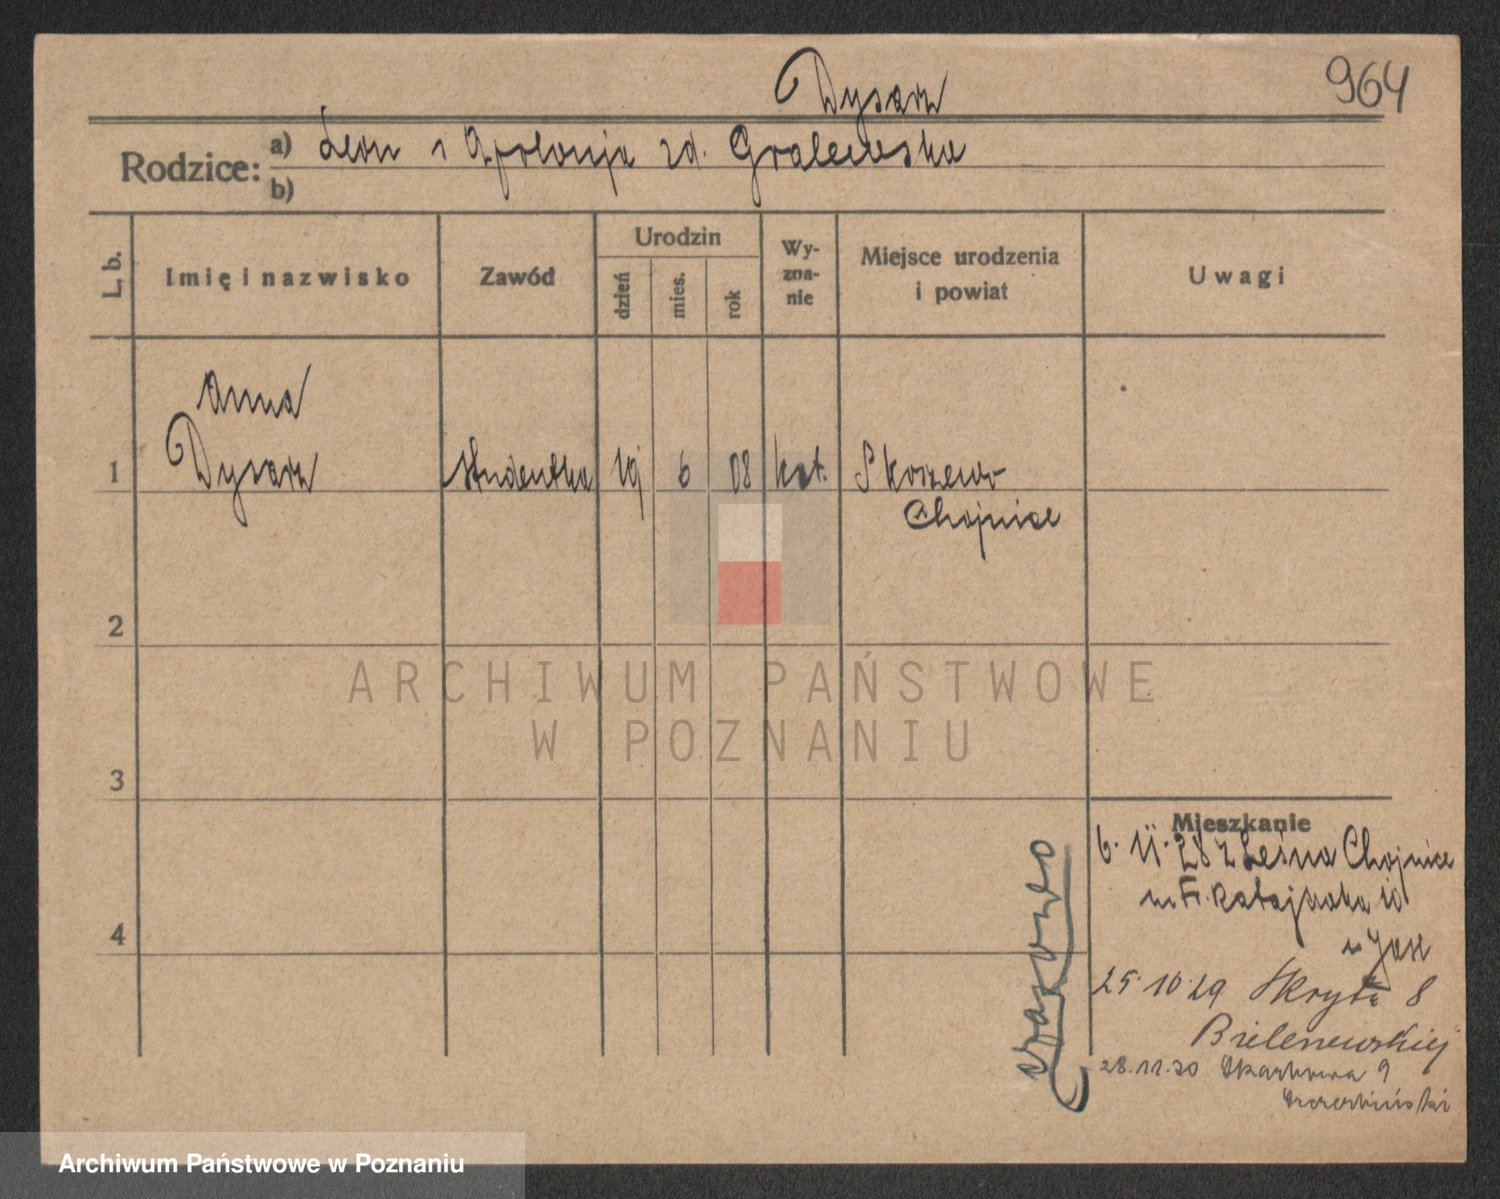 964
Dysarz
Rodzice: a) Leon i Apolonja zd. Gralewska
b)
L. b.
Imię i nazwisko
Zawód
Urodzin
dzień
mies.
rok
Wy-
zna-
nie
Miejsce urodzenia
i powiat
Uwagi
Anna
1 Dysarz studentka 19 6 08 kat. Skorzewo
Chojnice
2
ARCHIWUM PAŃSTWOWE
W POZNANIU
3
Mieszkanie
6. 11. 28 z Leśna Chojnice
m Fr. Ratajczaka 10
4
25.10.29 Skryta 8
28.11.30 Skarbowa 9
czasowo
Archiwum Państwowe w Poznaniu